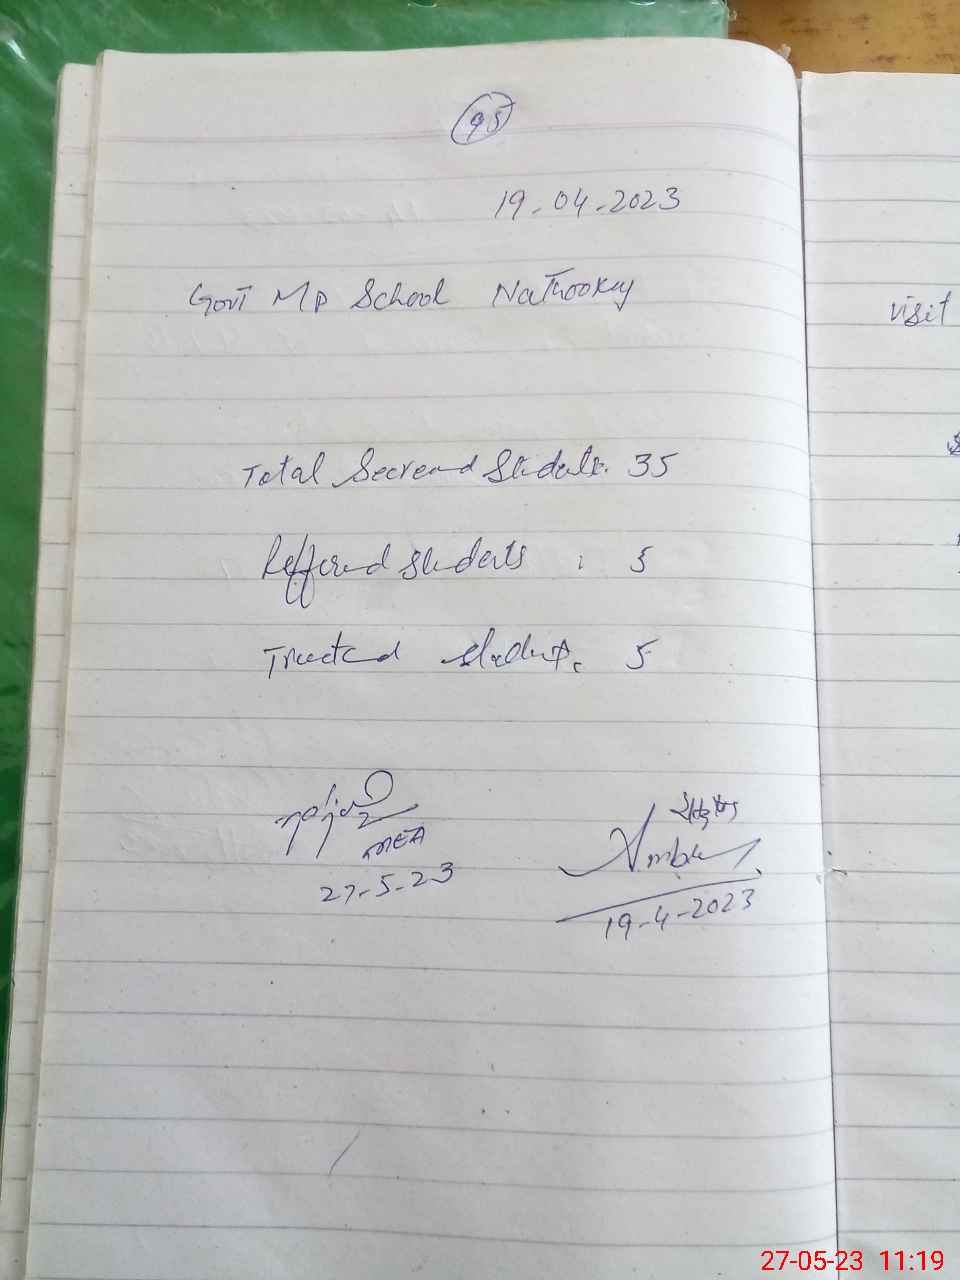 95
19-04-2023
Govt MP School Nathookey
Total Secreend Students. 35
Reffered Students : 5
Treeted Students. 5
MEA
27-5-23
19-4-2023
visit
27-05-23 11:19